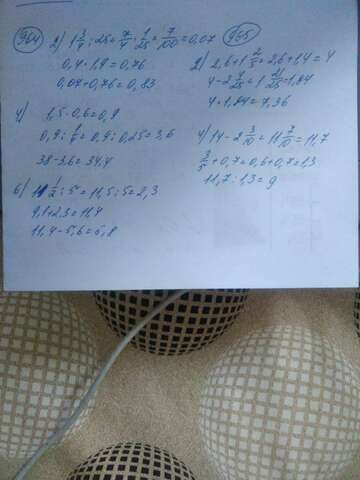 964
2) 1 3/4 : 25 = 7/4 · 1/25 = 7/100 = 0,07
0,4 · 1,9 = 0,76
0,07 + 0,76 = 0,83
4) 1,5 · 0,6 = 0,9
0,9 : 1/4 = 0,9 : 0,25 = 3,6
38 - 3,6 = 34,4
6) 11 1/2 : 5 = 11,5 : 5 = 2,3
9,1 + 2,3 = 11,4
11,4 - 5,6 = 5,8
965
2) 2,6 + 1 2/5 = 2,6 + 1,4 = 4
4 · 1,84 = 7,36
4) 14 - 2 3/10 = 11 7/10 = 11,7
3/5 + 0,7 = 0,6 + 0,7 = 1,3
11,7 : 1,3 = 9